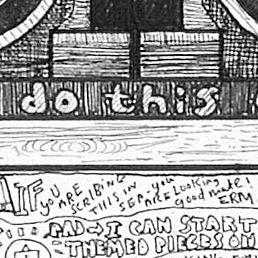 do this
IF you ARE SCRIBING THIS IN you
SEPARE Looking good mate!
ERM
PAD → I CAN START
THEMED PIECES ON